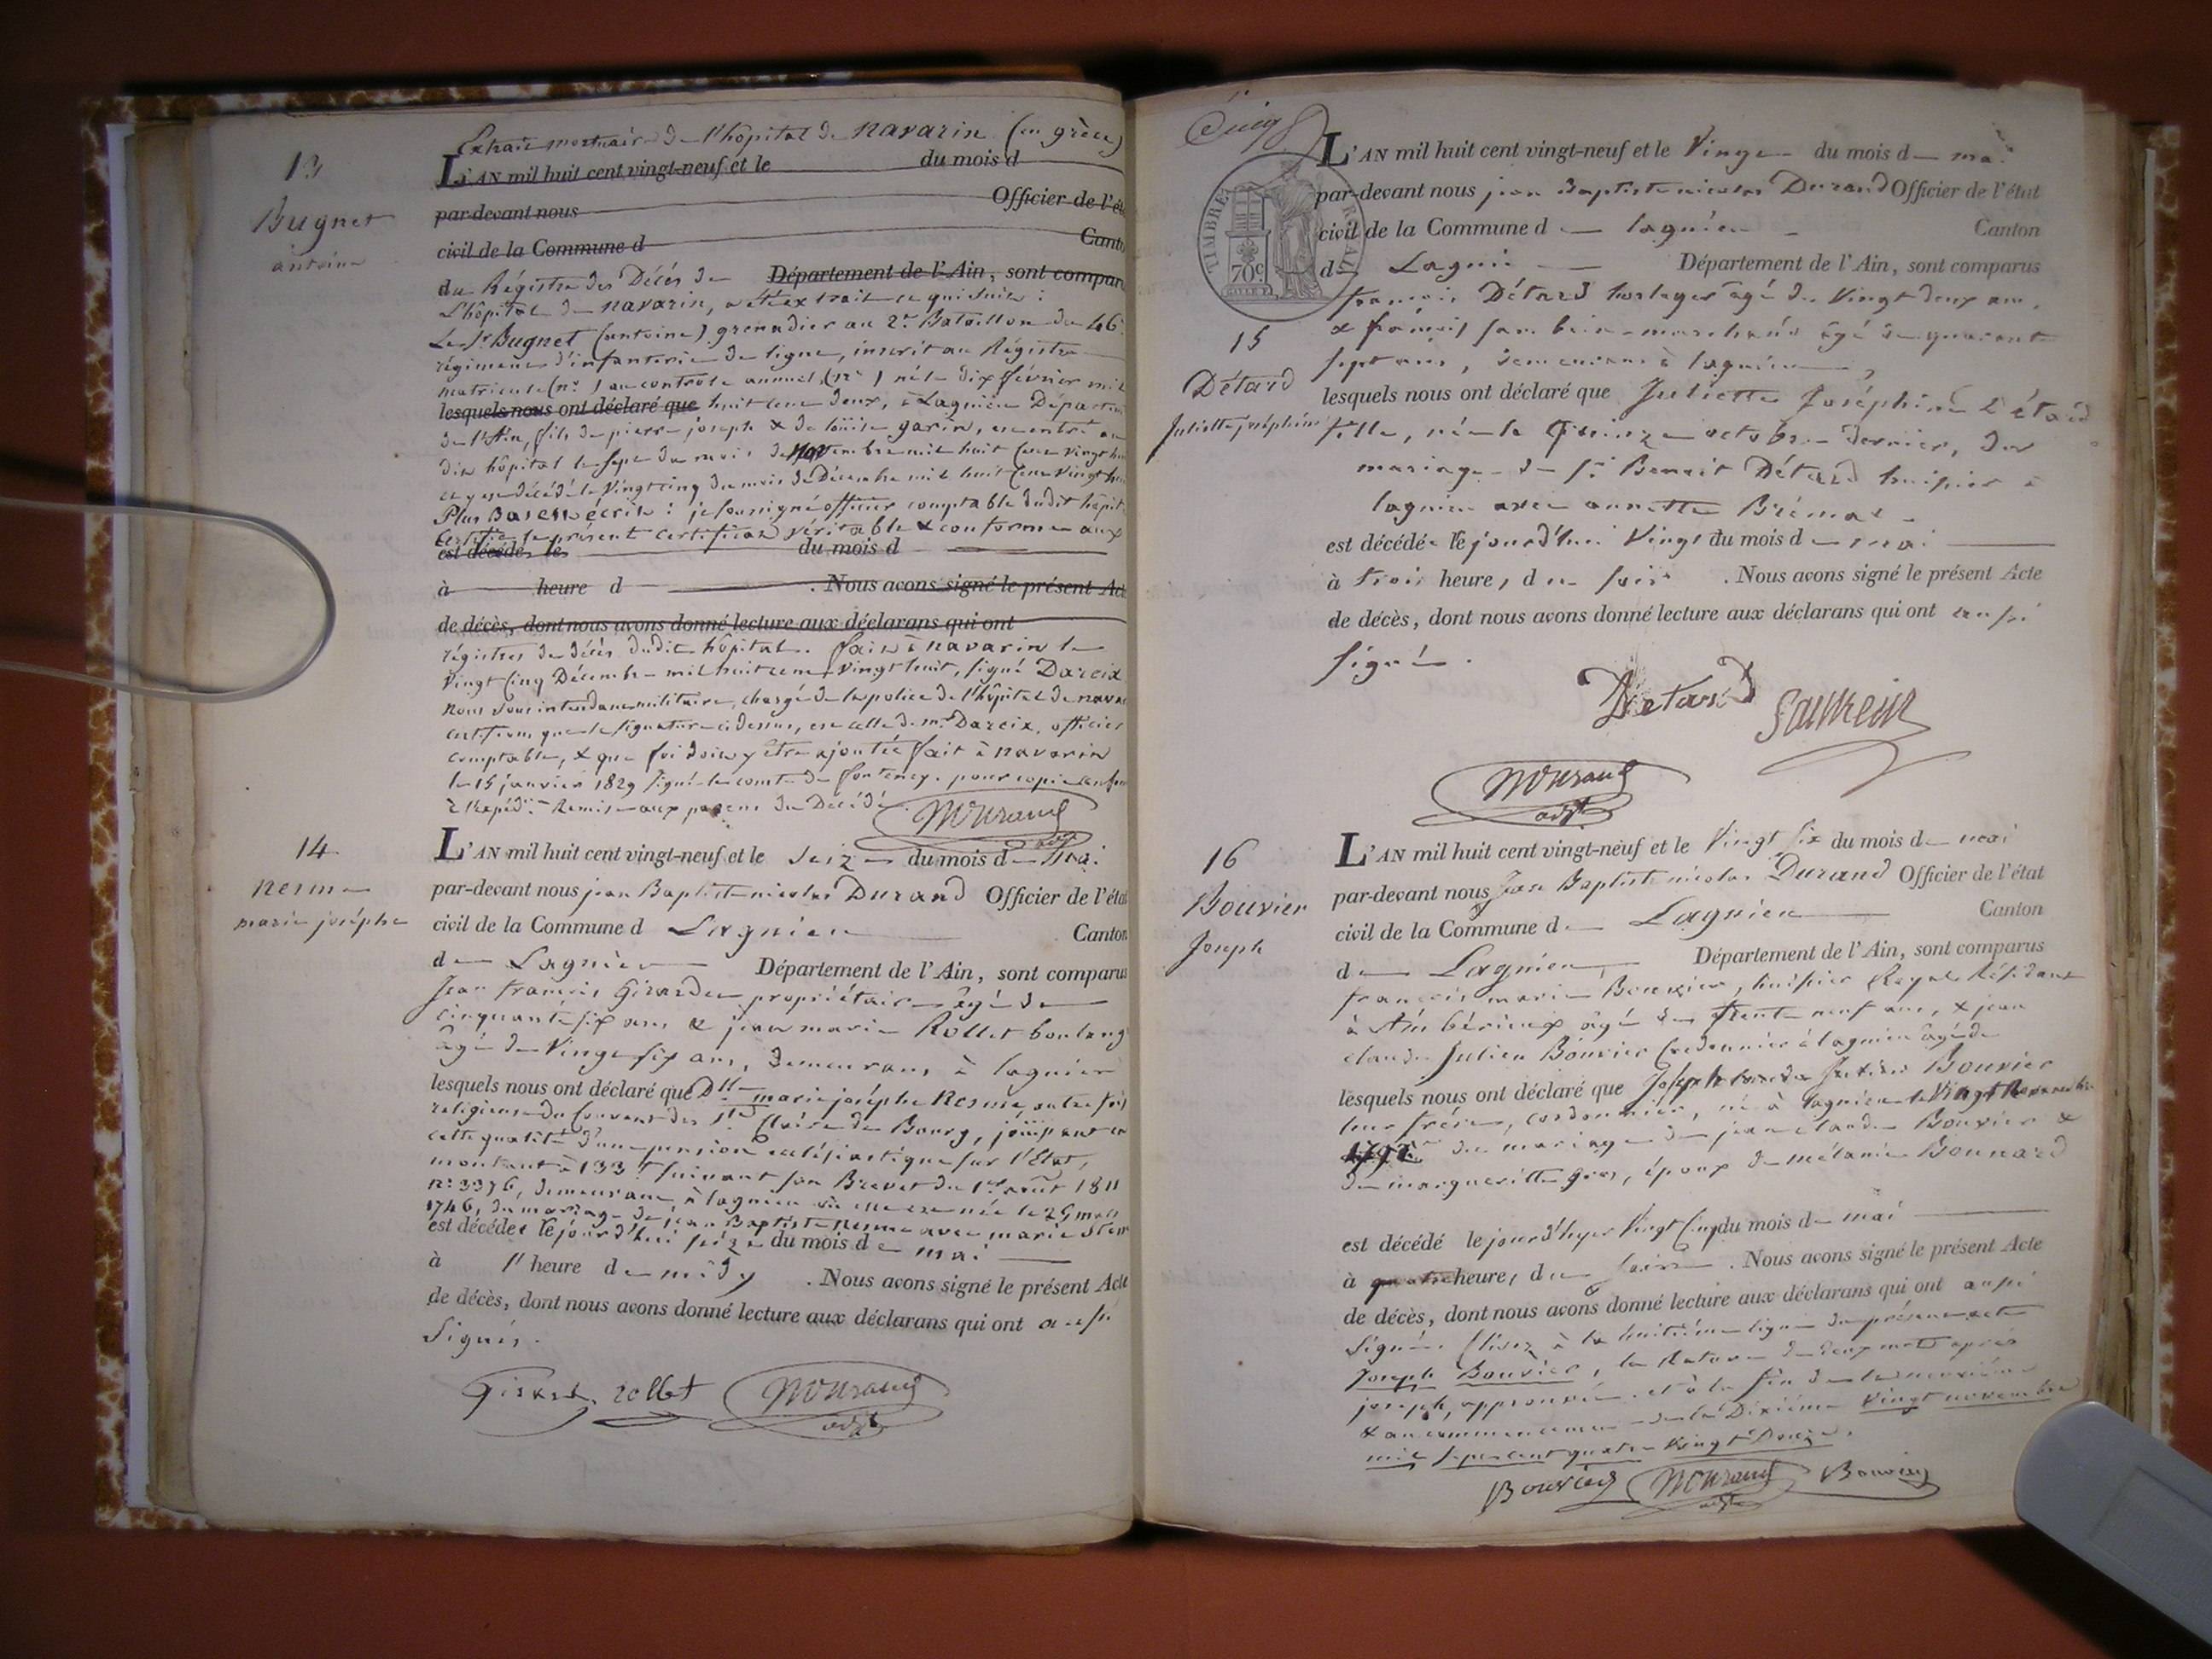 13
Bugnet
antoine
Extrait mortuaire de l'hôpital de navarin (en grèce)
L'AN mil huit cent vingt-neuf et le du mois d
par-devant nous Officier de l'ét
civil de la Commune d Canto
du Régistre des Décès de Département de l'Ain, sont compar
L'hôpital de navarin, a été extrait ce qui suit :
Le Sr Bugnet (antoine) grenadier au 2e Bataillon du 46e
régiment d'infanterie de ligne, inscrit au Régistre
matricule (no ) au contrôle annuel (no ) né le dix février mil
lesquels nous ont déclaré que huit cent deux, à Lagnieu Départem
de l'Ain, fils de pierre joseph & de louise garin, est entré au
dit hôpital le sept du mois de novembre mil huit cent vingt hu
et y est décédé le Vingt cinq du mois de Décembre mil huit cent Vingt hu
Plus Bas est écrit : je soussigné officier comptable dudit hôpit
Certifie le présent certificat véritable & conforme aux
est décédé le du mois d
à heure d . Nous avons signé le présent Act
de décès, dont nous avons donné lecture aux déclarans qui ont
régistres de décès dudit hôpital. fait à navarin le
Vingt Cinq Décembre mil huit cent vingt huit, signé Darcix
nous sous intendant militaire, chargé de la police de l'hôpital de nava
certifions que la signature ci dessus, est celle de mr Darcix, officier
comptable, & que foi doit y être ajoutée fait à navarin
le 15 janvier 1829 signé le comte de fonteney. pour copie
Remise aux parens du Décédé
NDurand
adjt
14
nesme
marie joséphe
L'AN mil huit cent vingt-neuf et le Seize du mois de Mai
par-devant nous jean Baptiste nicolas Durand Officier de l'éta
civil de la Commune d Lagnieu Canton
de Lagnieu Département de l'Ain, sont comparus
Jean françois Girardet propriétaire âgé de
cinquante six ans & jean marie Rollet boulang
âgé de Vingt six ans, demeurans à lagnieu
lesquels nous ont déclaré que Dlle marie joséphe Nesme, autre fois
religieuse du Couvent des Ste Claire de Bourg, jouissant en
cette qualité d'une pension ecclésiastique sur l'Etat,
montant à 133 f suivant son Brevet du 1er août 1811
no 3376, demeurant à lagnieu où elle est née le 25 mars
1746, du mariage de jean Baptiste Nesme avec marie
est décédée le jourd'hui seize du mois de mai
à l'heure de midy . Nous avons signé le présent Acte
de décès, dont nous avons donné lecture aux déclarans qui ont aussi
Signés.
Girard. rollet NDurand
adjt
Cinq
TIMBRE ROYAL
70c
15
Détard
Juliette joséphine
L'AN mil huit cent vingt-neuf et le Vingt du mois de mai
par-devant nous jean Baptiste nicolas Durand Officier de l'état
civil de la Commune de lagnieu Canton
de Lagnieu Département de l'Ain, sont comparus
françois Détard horloger âgé de Vingt deux ans,
& françois marchand âgé de quarante
sept ans, demeurans à lagnieu,
lesquels nous ont déclaré que Juliette Joséphine Détard
fille, née le Quinze octobre dernier, du
mariage de Sr Benoit Détard huissier à
lagnieu avec annette
est décédée le jourd'hui Vingt du mois de mai
à trois heures du soir . Nous avons signé le présent Acte
de décès, dont nous avons donné lecture aux déclarans qui ont aussi
signé.
Detard
NDurand
adjt
16
Bouvier
Joseph
L'AN mil huit cent vingt-neuf et le Vingt Six du mois de mai
par-devant nous Jean Baptiste nicolas Durand Officier de l'état
civil de la Commune de Lagnieu Canton
de Lagnieu Département de l'Ain, sont comparus
françois marie Bouvier, huissier Royal Résidant
à Ambérieux âgé de trente neuf ans, & jean
claude Julien Bouvier Cordonnier à lagnieu âgé de
lesquels nous ont déclaré que Joseph Bouvier
leur frère, cordonnier, né à lagnieu le Vingt Novembre
1792 du mariage de jean claude Bouvier &
de margueritte gros, époux de mélanie Bonnard
est décédé le jour d'hyer Vingt Cinq du mois de mai
à quatre heures du soir . Nous avons signé le présent Acte
de décès, dont nous avons donné lecture aux déclarans qui ont aussi
Signé. (lisez à la huitième ligne du présent acte
Joseph Bouvier, la Rature de deux mots après
joseph, approuvée. et à la fin de la neuvième
& au commencement de la Dixième Vingt novembre
mil sept cent quatre vingt Douze.
Bouvier NDurand Bouvier
adjt